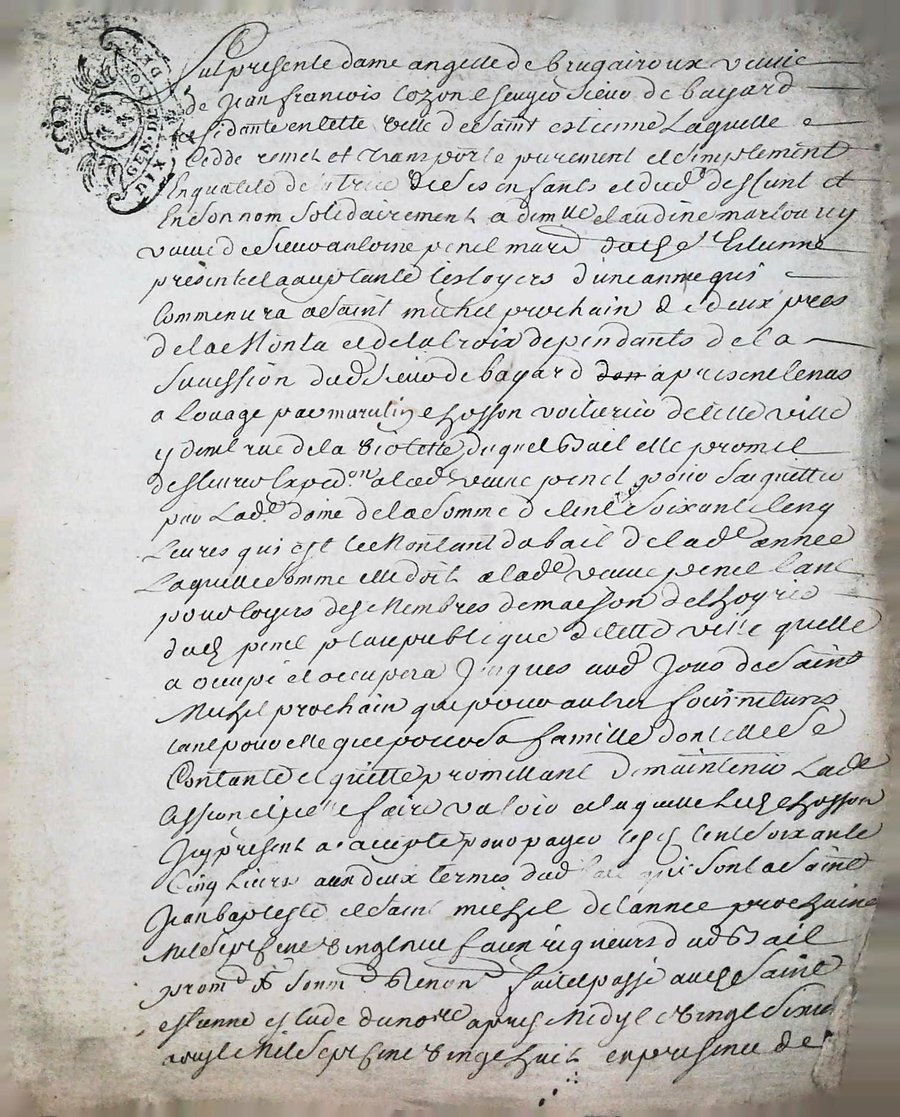 GEN. DE LYON
DIX DEN.
fut presente dame angelle de brugairoux veuve
de Jean francois Cozon escuyer sieur de bayard
residante en cette ville de Saint estienne Laquelle
cedde remet et transporte purement et simplement
En qualité de tutrice de ses enfants et dud. deffunt et
En son nom solidairement a dem.lle claudine marcoury
veuve de sieur antoine penel mard dud. St. Estienne
presente et acceptante les loyers d'une année qui
commencera a Saint michel prochain de deux prés
de la Monta et de la Croix dependants de la
Succession dud. sieur de bayard don a present tenus
a Louage par marcelin chosson voiturier de cette ville
y dem.t rue de la violette duquel bail elle promet
deslivrer exped.on a lad. veuve penel pour s'acquitter
par Lad.e dame de la somme de cent soixante cinq
Livres qui est le Montant du bail de lad.e année
Laquelle somme elle doit a lad.e veuve penel tant
pour loyers des Membres de maison de l'hoyrie
dud. penel place publique de cette ville quelle
a occupé et occupera Jusques aud. Jour de Saint
Michel prochain que pour autres fournitures
tant pour elle que pour sa famille dont elle se
Contante et quitte promettant de maintenir Lad.e
Cession et icelle faire valoir a laquelle led. chosson
Icy present a accepté pour payer lesd. cent soixante
Cinq Livres aux deux termes dud. bail qui sont a Saint
Jean baptiste et Saint michel de l'année prochaine
Mil sept cent vingt neuf aux rigueurs dud. bail
prom.t & soum.t & Renon.t fait et passé aud. Saint
estienne estude du no.re apres Midy le vingt sixieme
avril Mil sept cent vingt huit en presence de